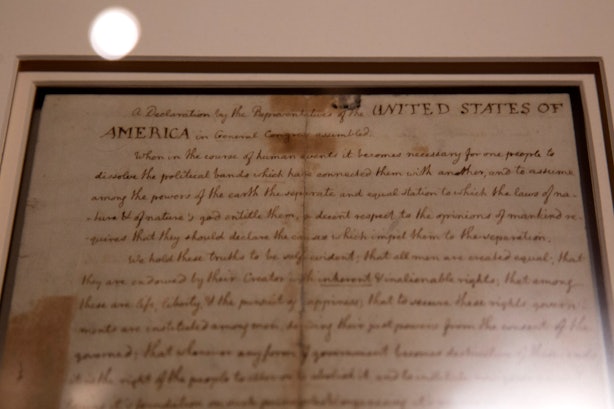 A Declaration by the Representatives of the UNITED STATES OF
AMERICA in General Congress assembled.
When in the course of human events it becomes necessary for one people to
dissolve the political bands which have connected them with another, and to assume
among the powers of the earth the separate and equal station to which the laws of na-
-ture & of nature's god entitle them, a decent respect to the opinions of mankind re-
-quires that they should declare the causes which impel them to the separation.
We hold these truths to be self evident; that all men are created equal; that
they are endowed by their Creator with inherent & inalienable rights; that among
these are life, liberty, & the pursuit of happiness; that to secure these rights, govern-
ments are instituted among men, deriving their just powers from the consent of the
governed; that whenever any form of government becomes destructive of these ends
it is the right of the people to alter or abolish it, and to institute new
foundation on such principles